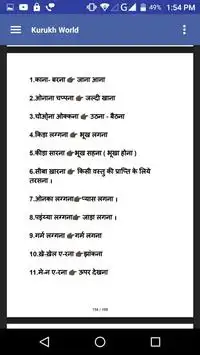 1:54 PM
Kurukh World
1.काना- बरना 👉 जाना आना
2.ओनाना चप्पना 👉 जल्दी खाना
3.चोओ़ना ओक्कना 👉 उठना - बैठना
4.किड़ा लग्गना 👉 भूख लगना
5.कीड़ा सारना 👉भूख सहना ( भूखा होना )
6.सीबा ख़ारना 👉 किसी वस्तु की प्राप्ति के लिये
तरसना ।
7.ओनका लग्गना👉प्यास लगना ।
8.पंइय्या लग्गना👉जाड़ा लगना ।
9.गर्म लग्गना 👉गर्म लगना
10.ख़े-खेल ए-रना 👉झांकना
11.मे-न ए-रना 👉 ऊपर देखना